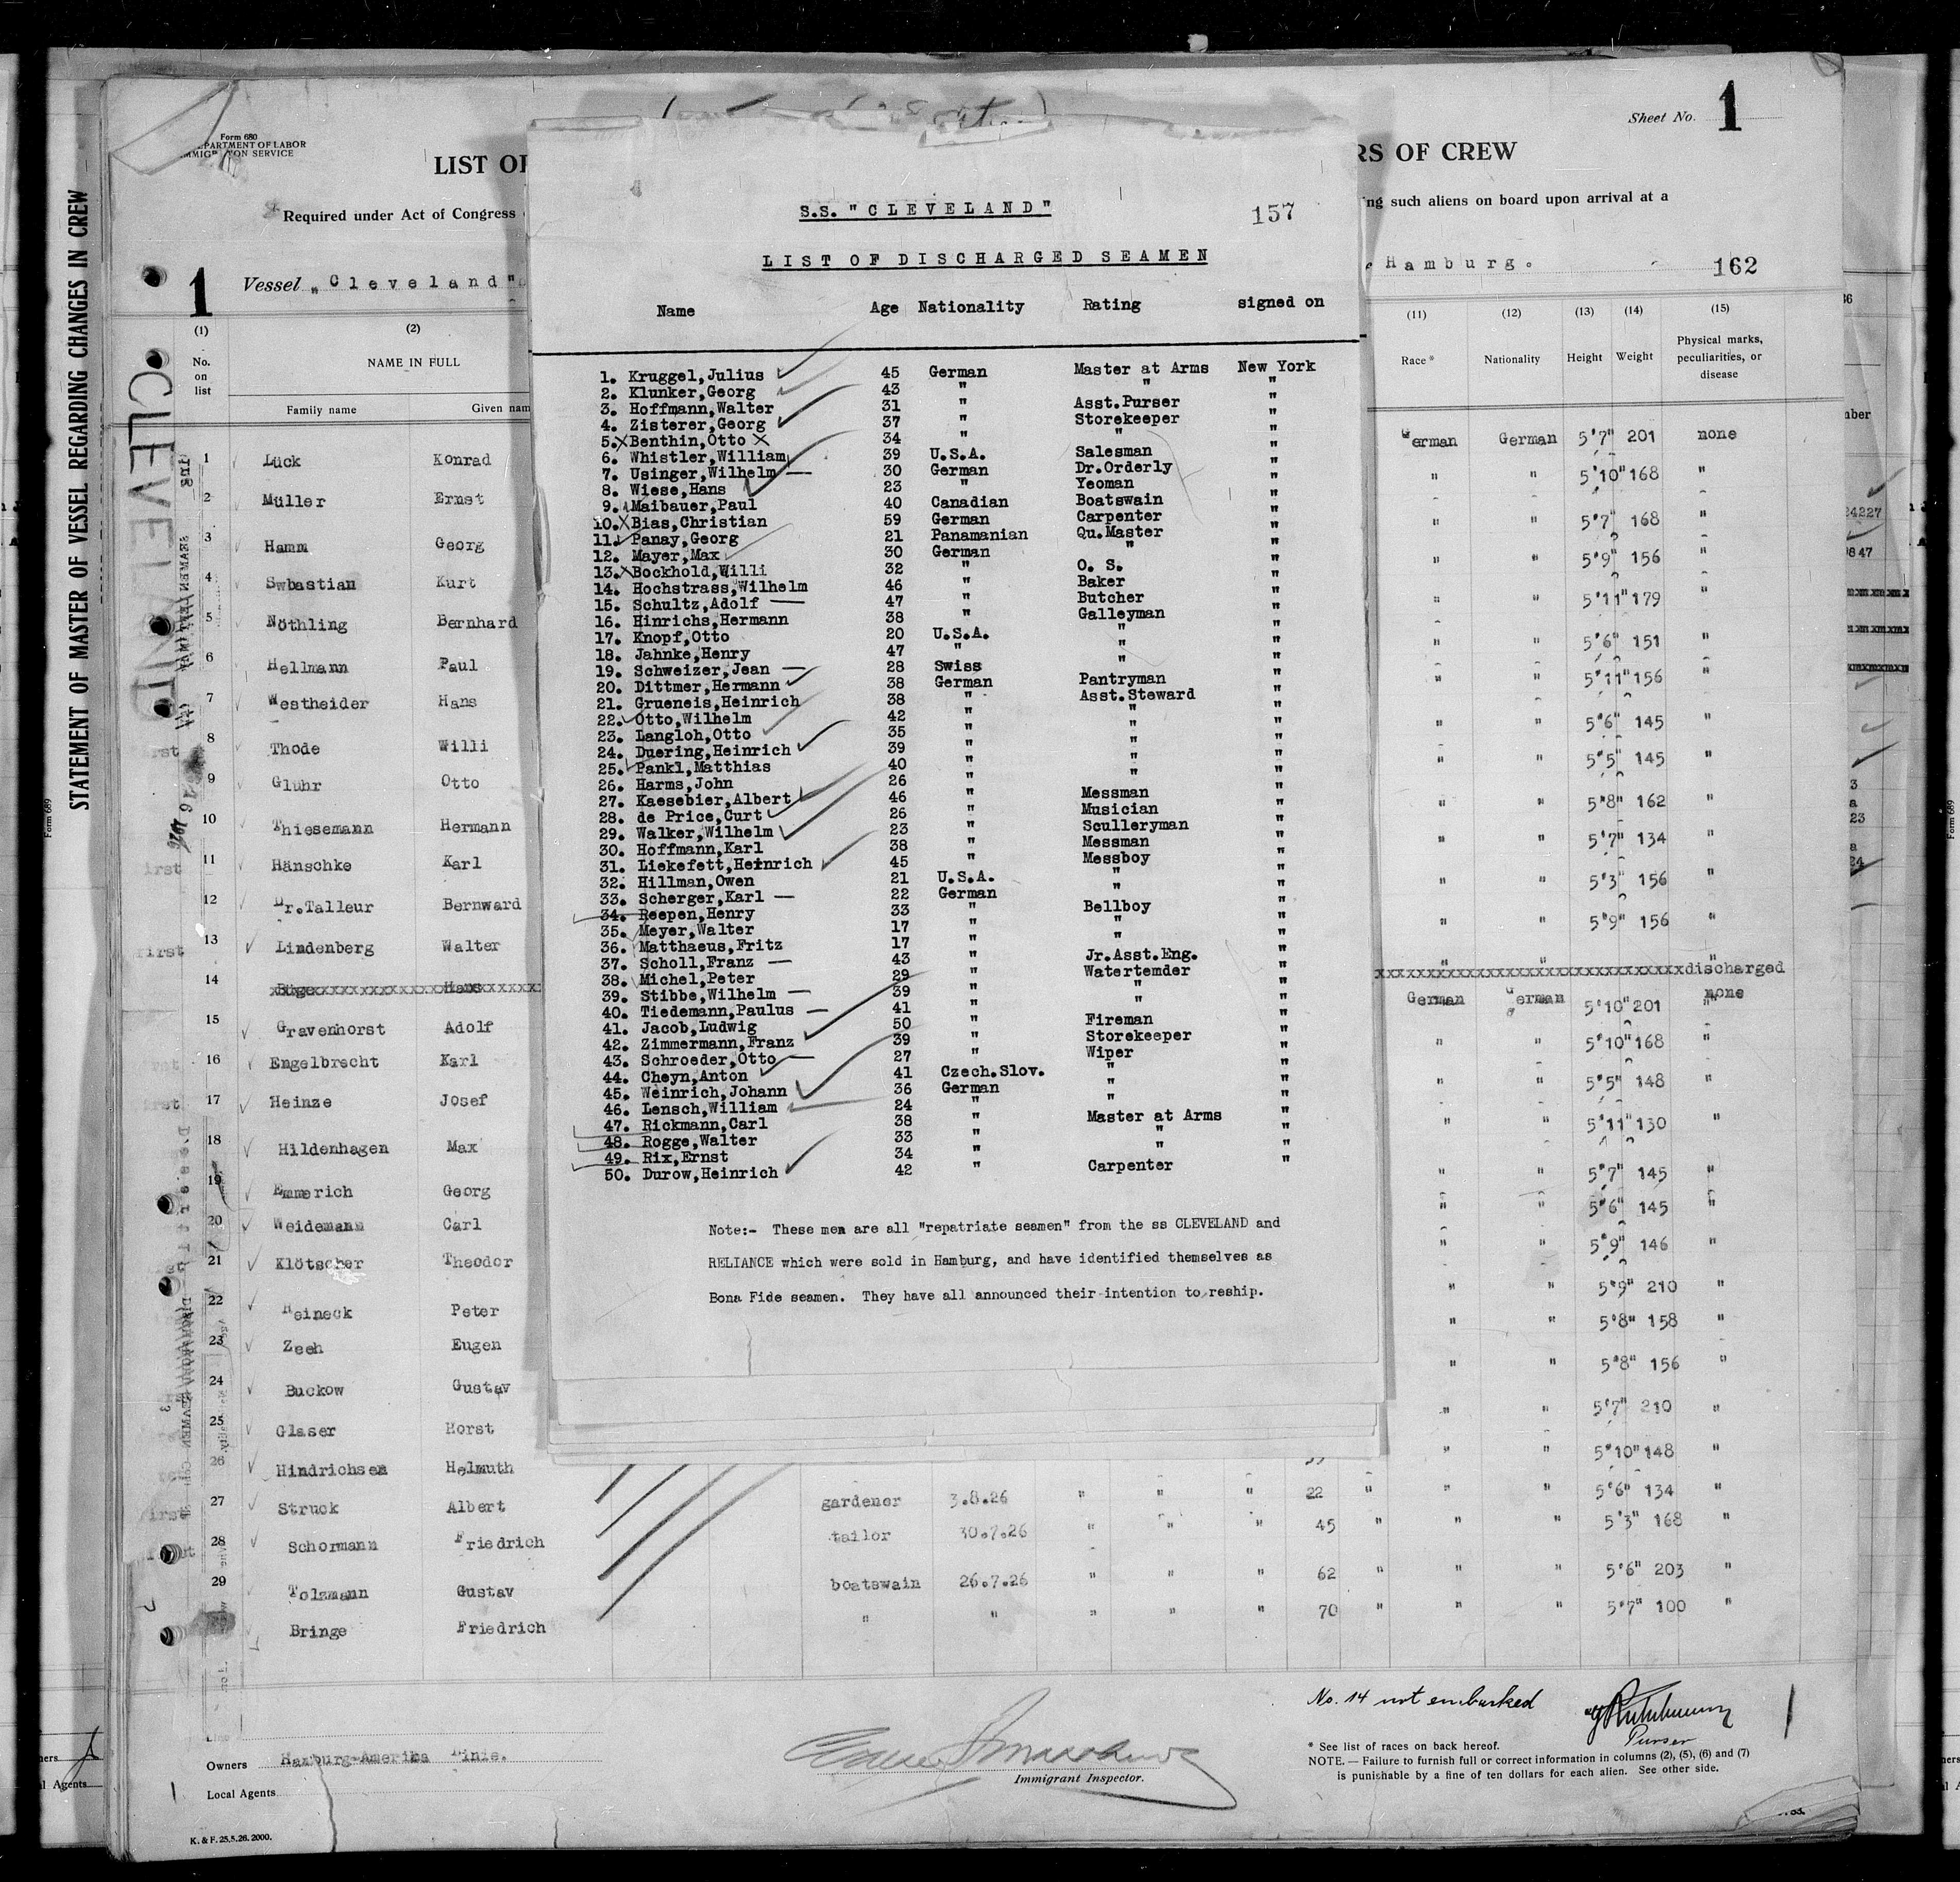 Sheet No. 1
Form 680
DEPARTMENT OF LABOR
IMMIGRATION SERVICE
LIST OF
RS OF CREW
Required under Act of Congress
ing such aliens on board upon arrival at a
1 Vessel „Cleveland"
Hamburg. 162
STATEMENT OF MASTER OF VESSEL REGARDING CHANGES IN CREW
Form 689
CLEVELAND
S.S. "CLEVELAND" 157
LIST OF DISCHARGED SEAMEN
Name Age Nationality Rating signed on
1. Kruggel,Julius 45 German Master at Arms New York
2. Klunker,Georg 43 " " "
3. Hoffmann,Walter 31 " Asst.Purser "
4. Zisterer,Georg 37 " Storekeeper "
5. Benthin,Otto 34 " " "
6. Whistler,William 39 U.S.A. Salesman "
7. Usinger,Wilhelm 30 German Dr.Orderly "
8. Wiese,Hans 23 " Yeoman "
9. Maibauer,Paul 40 Canadian Boatswain "
10. Bias,Christian 59 German Carpenter "
11. Panay,Georg 21 Panamanian Qu.Master "
12. Mayer,Max 30 German " "
13. Bockhold,Willi 32 " O. S. "
14. Hochstrass,Wilhelm 46 " Baker "
15. Schultz,Adolf 47 " Butcher "
16. Hinrichs,Hermann 38 " Galleyman "
17. Knopf,Otto 20 U.S.A. " "
18. Jahnke,Henry 47 " " "
19. Schweizer,Jean 28 Swiss " "
20. Dittmer,Hermann 38 German Pantryman "
21. Grueneis,Heinrich 38 " Asst.Steward "
22. Otto,Wilhelm 42 " " "
23. Langloh,Otto 35 " " "
24. Duering,Heinrich 39 " " "
25. Pankl,Matthias 40 " " "
26. Harms,John 26 " " "
27. Kaesebier,Albert 46 " Messman "
28. de Price,Curt 26 " Musician "
29. Walker,Wilhelm 23 " Sculleryman "
30. Hoffmann,Karl 38 " Messman "
31. Liekefett,Heinrich 45 " Messboy "
32. Hillman,Owen 21 U.S.A. " "
33. Scherger,Karl 22 German " "
34. Reepen,Henry 33 " Bellboy "
35. Meyer,Walter 17 " " "
36. Matthaeus,Fritz 17 " " "
37. Scholl,Franz 43 " Jr.Asst.Eng. "
38. Michel,Peter 29 " Watertemder "
39. Stibbe,Wilhelm 39 " " "
40. Tiedemann,Paulus 41 " " "
41. Jacob,Ludwig 50 " Fireman "
42. Zimmermann,Franz 39 " Storekeeper "
43. Schroeder,Otto 27 " Wiper "
44. Cheyn,Anton 41 Czech.Slov. " "
45. Weinrich,Johann 36 German " "
46. Lensch,William 24 " " "
47. Rickmann,Carl 38 " Master at Arms "
48. Rogge,Walter 33 " " "
49. Rix,Ernst 34 " " "
50. Durow,Heinrich 42 " Carpenter "
Note:- These men are all "repatriate seamen" from the ss CLEVELAND and
RELIANCE which were sold in Hamburg, and have identified themselves as
Bona Fide seamen. They have all announced their intention to reship.
(1) (2) (11) (12) (13) (14) (15)
No. on list NAME IN FULL Race* Nationality Height Weight Physical marks, peculiarities, or disease
Family name Given nam
1 Lück Konrad German German 5'7" 201 none
2 Müller Ernst " " 5'10" 168 "
3 Hamm Georg " " 5'7" 168 "
4 Swbastian Kurt " " 5'9" 156 "
5 Nöthling Bernhard " " 5'11" 179 "
6 Hellmann Paul " " 5'6" 151 "
7 Westheider Hans " " 5'11" 156 "
8 Thode Willi " " 5'6" 145 "
9 Glühr Otto " " 5'5" 145 "
10 Thiesemann Hermann " " 5'8" 162 "
11 Hänschke Karl " " 5'7" 134 "
12 Dr.Talleur Bernward " " 5'3" 156 "
13 Lindenberg Walter " " 5'9" 156 "
14 Hans discharged
15 Gravenhorst Adolf German German 5'10" 201 none
16 Engelbrecht Karl " " 5'10" 168 "
17 Heinze Josef " " 5'5" 148 "
18 Hildenhagen Max " " 5'11" 130 "
19 Emmerich Georg " " 5'7" 145 "
20 Weidemann Carl " " 5'6" 145 "
21 Klötscher Theodor " " 5'9" 146 "
22 Heineck Peter " " 5'9" 210 "
23 Zeeh Eugen " " 5'8" 158 "
24 Buckow Gustav " " 5'8" 156 "
25 Glaser Horst " " 5'7" 210 "
26 Hindrichsen Helmuth " " 5'10" 148 "
27 Struck Albert gardener 3.8.26 " " " 22 " " " 5'6" 134 "
28 Schormann Friedrich tailor 30.7.26 " " " 45 " " " 5'3" 168 "
29 Tolzmann Gustav boatswain 26.7.26 " " " 62 " " " 5'6" 203 "
Bringe Friedrich " " " " " 70 " " " 5'7" 100 "
No. 14 not embarked
Purser
Owners Hamburg-Amerika Linie.
Local Agents
Immigrant Inspector.
* See list of races on back hereof.
NOTE. — Failure to furnish full or correct information in columns (2), (5), (6) and (7)
is punishable by a fine of ten dollars for each alien. See other side.
K. & F. 25.5.26. 2000.